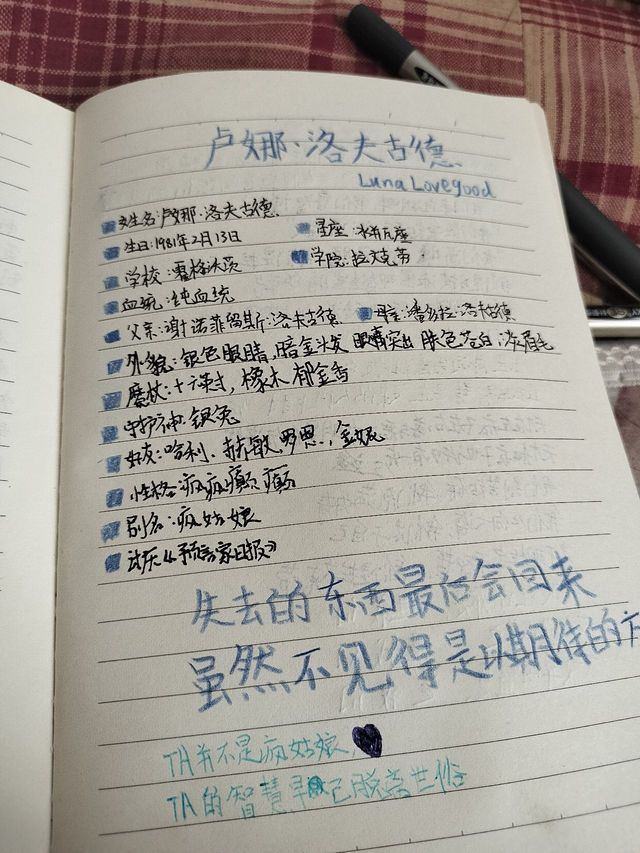 卢娜·洛夫古德
Luna Lovegood
姓名:卢娜·洛夫古德
生日:1981年2月13日 星座:水瓶座
学校:霍格沃茨 学院:拉文克劳
血统:纯血统
父亲:谢诺菲留斯·洛夫古德 母亲:潘多拉·洛夫古德
外貌:银色眼睛,暗金头发 眼睛突出 肤色苍白,淡眉毛
魔杖:十六英寸,橡木 郁金香
守护神:银兔
好友:哈利、赫敏、罗恩、金妮
性格:疯疯癫癫
别名:疯姑娘
《预言家日报》
失去的东西最后会回来
虽然不见得是以期待的方
TA并不是疯姑娘
TA的智慧早已脱离世俗